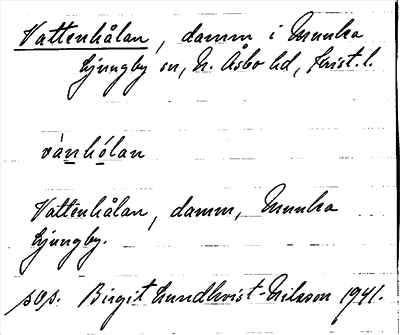 Vattenhålan, damm i Munka
Ljungby sn, N. Åsbo hd, Krist. l.
vànhólan
Vattenhålan, damm, Munka
Ljungby.
sos. Birgit Lundkvist-Nilsson 1941.